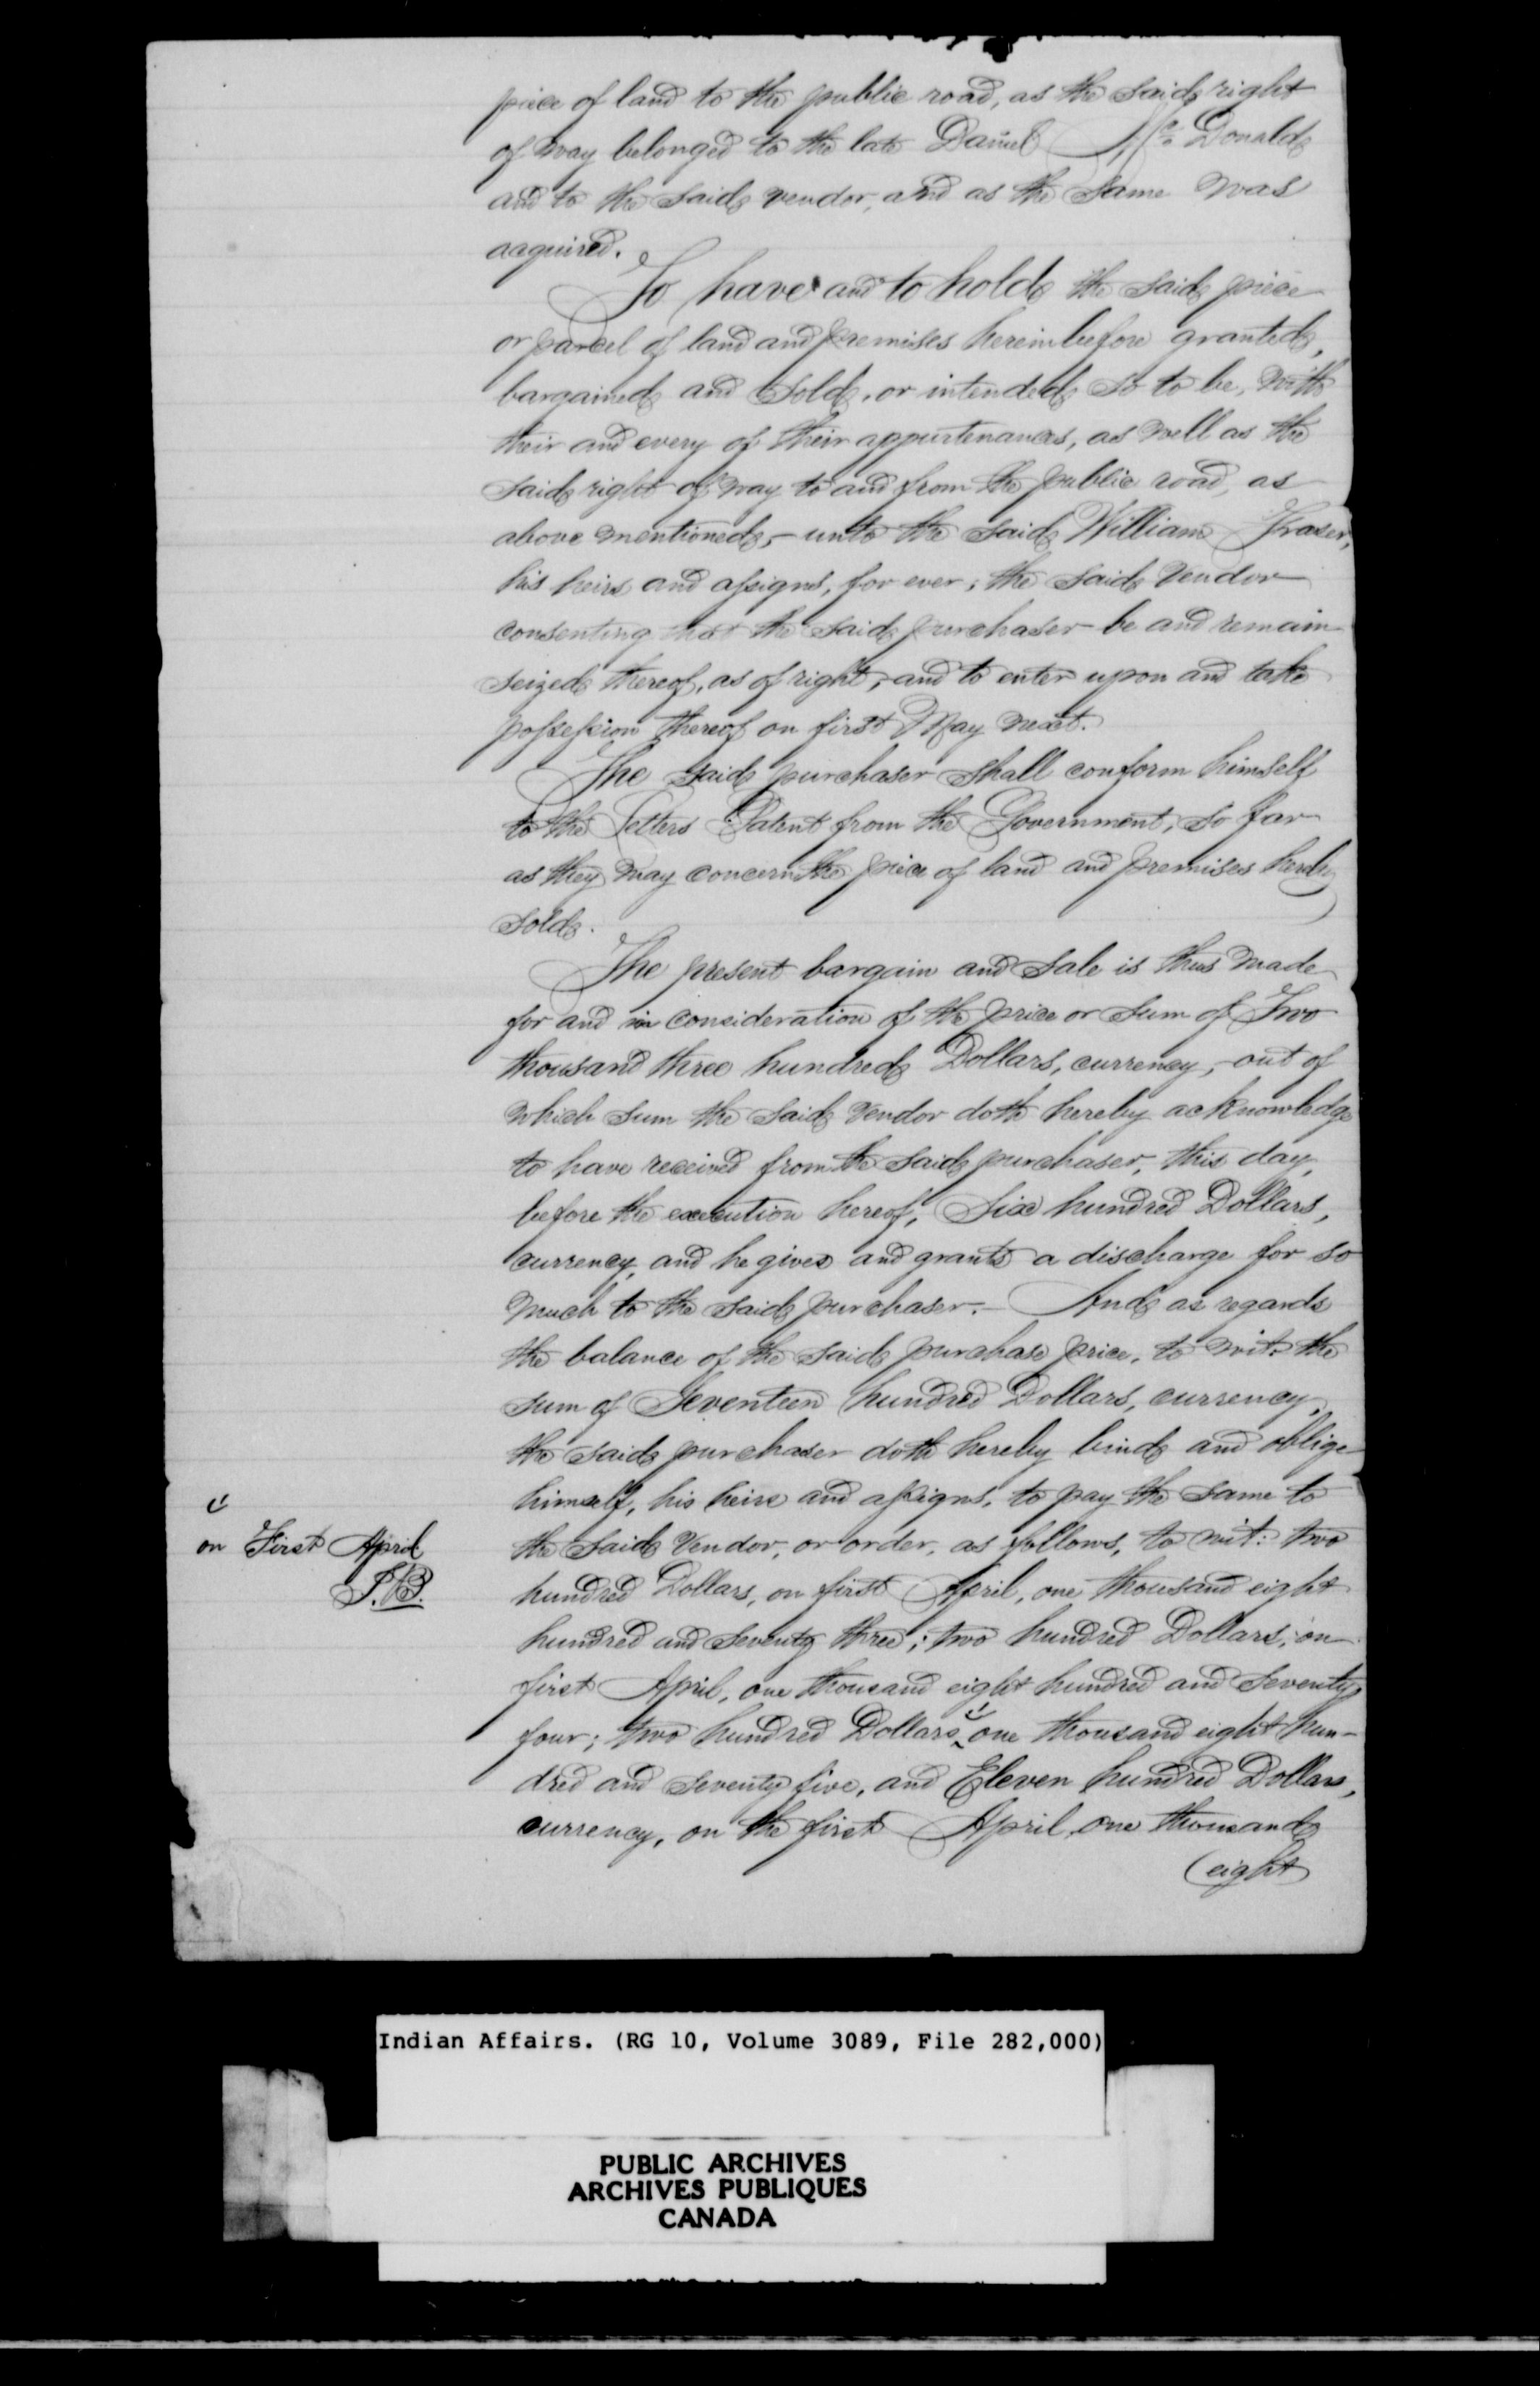 piece of land to the public road, as the said right
of way belonged to the late Daniel Mc Donald
and to the said vendor, and as the same was
acquired.
To have and to hold the said piece
or parcel of land and premises hereinbefore granted,
bargained and sold, or intended so to be, with
their and every of their appurtenances, as well as the
said right of way to and from the public road, as
above mentioned, - unto the said William Fraser,
his heirs and assigns, for ever; the said vendor
consenting that the said purchaser be and remain
seized thereof, as of right, and to enter upon and take
possession thereof on first May next.
The said purchaser shall conform himself
to the Letters Patent from the Government, so far
as they may concern the piece of land and premises hereby
sold.
The present bargain and sale is thus made
for and in consideration of the price or sum of Two
thousand three hundred Dollars, currency, - out of
which sum the said Vendor doth hereby acknowledge
to have received from the said purchaser, this day,
before the execution hereof, Six hundred Dollars,
currency, and he gives and grants a discharge for so
much to the said purchaser. - And as regards
the balance of the said purchase price, to wit: the
sum of Seventeen hundred Dollars, currency,
the said purchaser doth hereby bind and oblige
himself, his heirs and assigns, to pay the same to
the said Vendor, or order, as follows, to wit: two
hundred Dollars, on first April, one thousand eight
hundred and seventy three; two hundred Dollars, on
first April, one thousand eight hundred and seventy
four; two hundred Dollars, one thousand eight hun-
dred and seventy five, and Eleven hundred Dollars,
currency, on the first April, one thousand
(eight
on First April
J.B.
Indian Affairs. (RG 10, Volume 3089, File 282,000)
PUBLIC ARCHIVES
ARCHIVES PUBLIQUES
CANADA